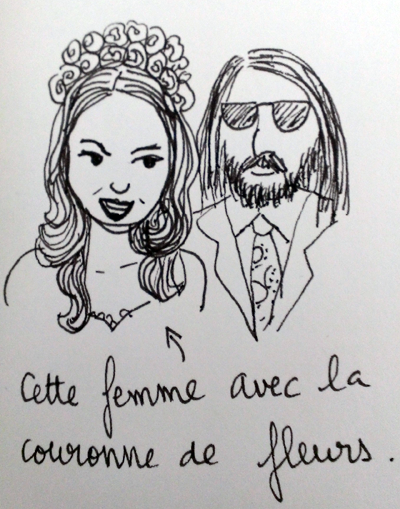 Cette femme avec la
couronne de fleurs.